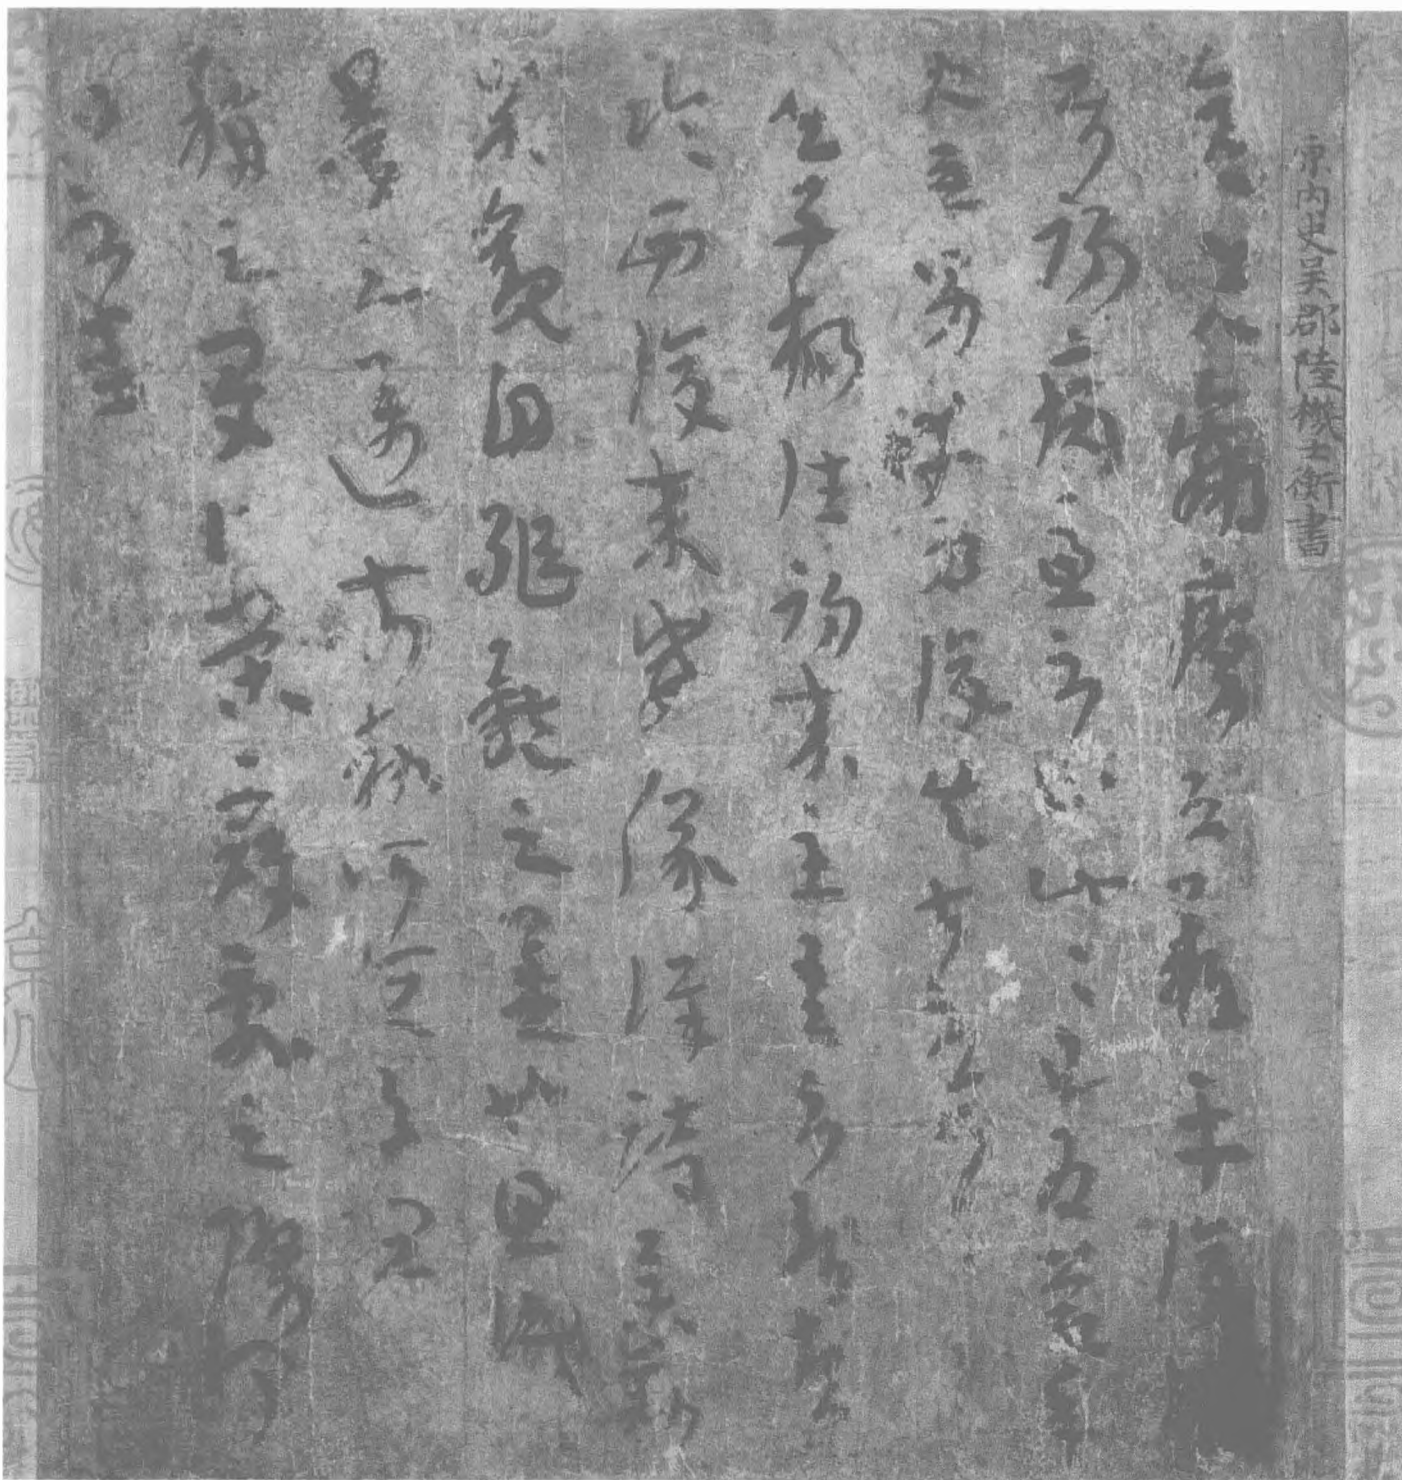 原内史吴郡陸機士衡書
彦先羸瘵恐難平復
初病慮不止此此已為慶承
使唯男幸為復失前憂耳
吳子楊往初來主吾不能盡
臨西復來威儀詳跱舉動
成觀自軀體之美也思識
量之邁前執所恒有宜
稱之夏伯榮寇亂之際聞問
不悉